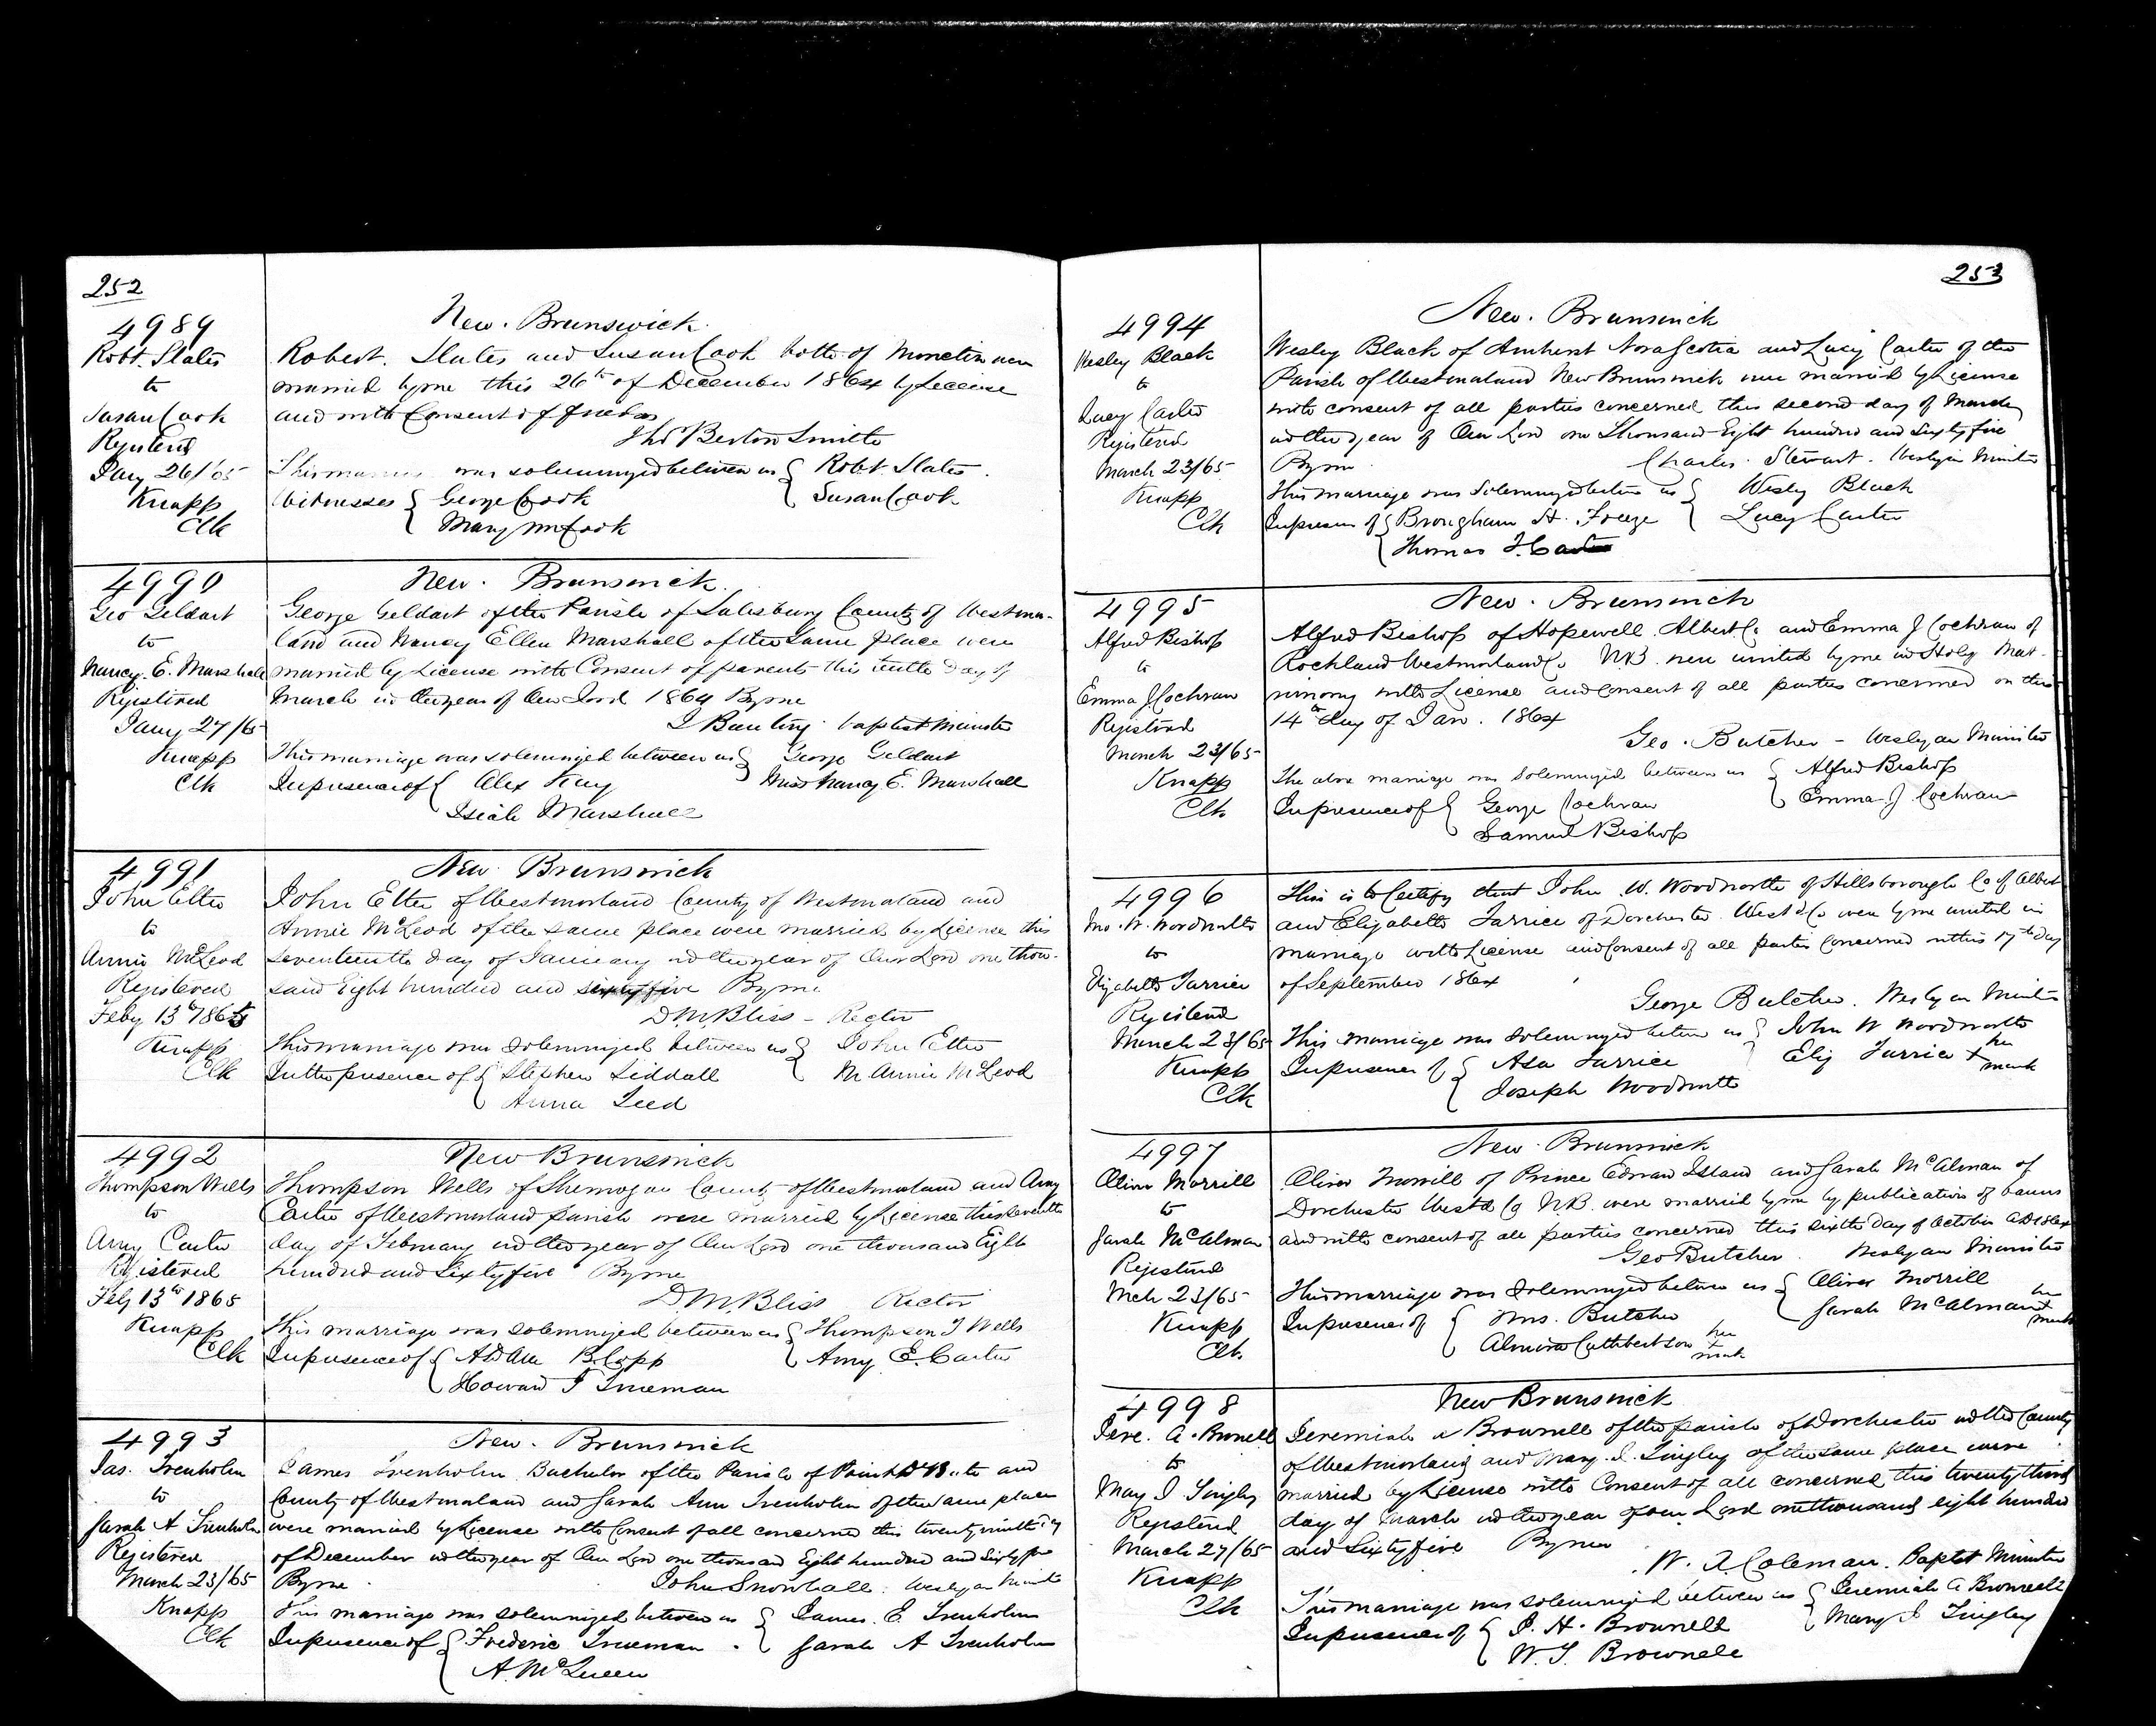 252
4989
Robt. Slates
to
Susan Cook
Registered
Jany 26/65
Knapp
Clk
New. Brunswick.
Robert. Slates and Susan Cook both of Moncton were
married by me this 26th of December 1864 by License
and with Consent of friends
Thos Berton Smith
This was solemnized between us { Robt Slates.
Susan Cook
Witnesses { George Cook
Mary Cook
4990
Geo Geldart
to
Nancy. E. Marshall
Registered
Jany 27/65
Knapp
Clk
New. Brunswick.
George Geldart of the Parish of Salisbury County of Westmor-
land and Nancy Ellen Marshall of the Same place were
married by License with Consent of parents this tenth Day of
March in the year of Our Lord 1864 By me
Baptist Minister
This marriage was solemnized between us } George Geldart
Miss Nancy E. Marshall
In presence of { Alex Kay
Isiah Marshall
4991
John Etter
to
Annie McLeod
Registered
Feby 13th 1865
Knapp
Clk
New Brunswick
John Etter of Westmorland County of Westmorland and
Annie McLeod of the same place were married by License this
seventeenth day of January in the year of Our Lord one thou-
sand Eight hundred and sixty five By me
D. M. Bliss - Rector
This marriage was solemnized between us } John Etter
M. Annie McLeod
In the presence of { Stephen Siddall
Anna
4992
Thompson Wells
to
Amy Carter
Registered
Feby 13th 1865
Knapp
Clk
New Brunswick
Thompson Wells of Shemogue County of Westmorland and Amy
Carter of Westmorland parish were married by License this
day of February in the year of Our Lord one thousand Eight
hundred and Sixty five By me
D. M. Bliss Rector
This marriage was solemnized between us { Thompson T Wells
Amy E. Carter
In presence of {
Howard T Trueman
4993
Jas. Trenholm
to
Sarah A Trenholm
Registered
March 23/65
Knapp
Clk
New. Brunswick
James Trenholm Bachelor of the Parish of Point de Bute and
County of Westmorland and Sarah Ann Trenholm of the same place
were married by License with Consent of all concerned this twenty ninth day
of December in the year of Our Lord one thousand Eight hundred and Sixty
By me. John Snowball. Wesleyan Minister
This marriage was solemnized between us { James. E. Trenholm
Sarah A Trenholm
In presence of { Frederic Trueman
A. McQueen
253
4994
Wesley Black
to
Lucy Carter
Registered
March 23/65
Knapp
Clk
New. Brunswick
Wesley Black of Amherst Nova Scotia and Lucy Carter of the
Parish of Westmorland New Brunswick were married by License
with consent of all parties concerned this second day of March
in the year of Our Lord one Thousand Eight hundred and Sixty five
By me. Charles. Stewart. Wesleyan Minister
This marriage was Solemnized between us { Wesley Black
Lucy Carter
In presence of { Brougham H. Freeze
Thomas Carter
4995
Alfred Bishop
to
Emma J Cochran
Registered
March 23/65
Knapp
Clk
New. Brunswick
Alfred Bishop of Hopewell Albert Co and Emma J Cochran of
Rockland Westmorland Co NB. were united by me in Holy Mat-
rimony with License and Consent of all parties concerned on the
14th day of Jan. 1864
Geo. Butcher - Wesleyan Minister
The above marriage was solemnized between us { Alfred Bishop
Emma J Cochran
In presence of { George Cochran
Samuel Bishop
4996
Jno. W. Woodworth
to
Elizabeth Tarrice
Registered
March 23/65
Knapp
Clk
This is to Certify that John W. Woodworth of Hillsborough Co of Albert
and Elizabeth Tarrice of Dorchester West'd Co were by me united in
marriage with License and Consent of all parties concerned on this 17th day
of September 1864
George Butcher. Wesleyan Minister
This marriage was Solemnized between us } John W Woodworth
Eliz Tarrice + her mark
In presence of { Asa Tarrice
Joseph Woodworth
4997
Oliver Morrill
to
Sarah McAlman
Registered
Mch 23/65
Knapp
Clk.
New. Brunswick
Oliver Morrill of Prince Edward Island and Sarah McAlman of
Dorchester West'd Co NB. were married by me by publication of banns
and with consent of all parties concerned this sixth day of October AD 1864
Geo Butcher Wesleyan Minister
This marriage was Solemnized between us { Oliver Morrill
Sarah McAlman + her mark
In presence of { Mrs. Butcher
Almira Cuthbertson her + mark
4998
Jere. A. Brownell
to
Mary I Tingley
Registered
March 27/65
Knapp
Clk
New Brunswick
Jeremiah A Brownell of the parish of Dorchester in the County
of Westmorland and Mary. I. Tingley of the Same place were
married by License with Consent of all concerned this twenty third
day of March in the year of our Lord one thousand eight hundred
and Sixty five By me
W. A. Coleman. Baptist Minister
This marriage was solemnized between us { Jeremiah A Brownell
Mary I Tingley
In presence of { J. H. Brownell
W. T. Brownell